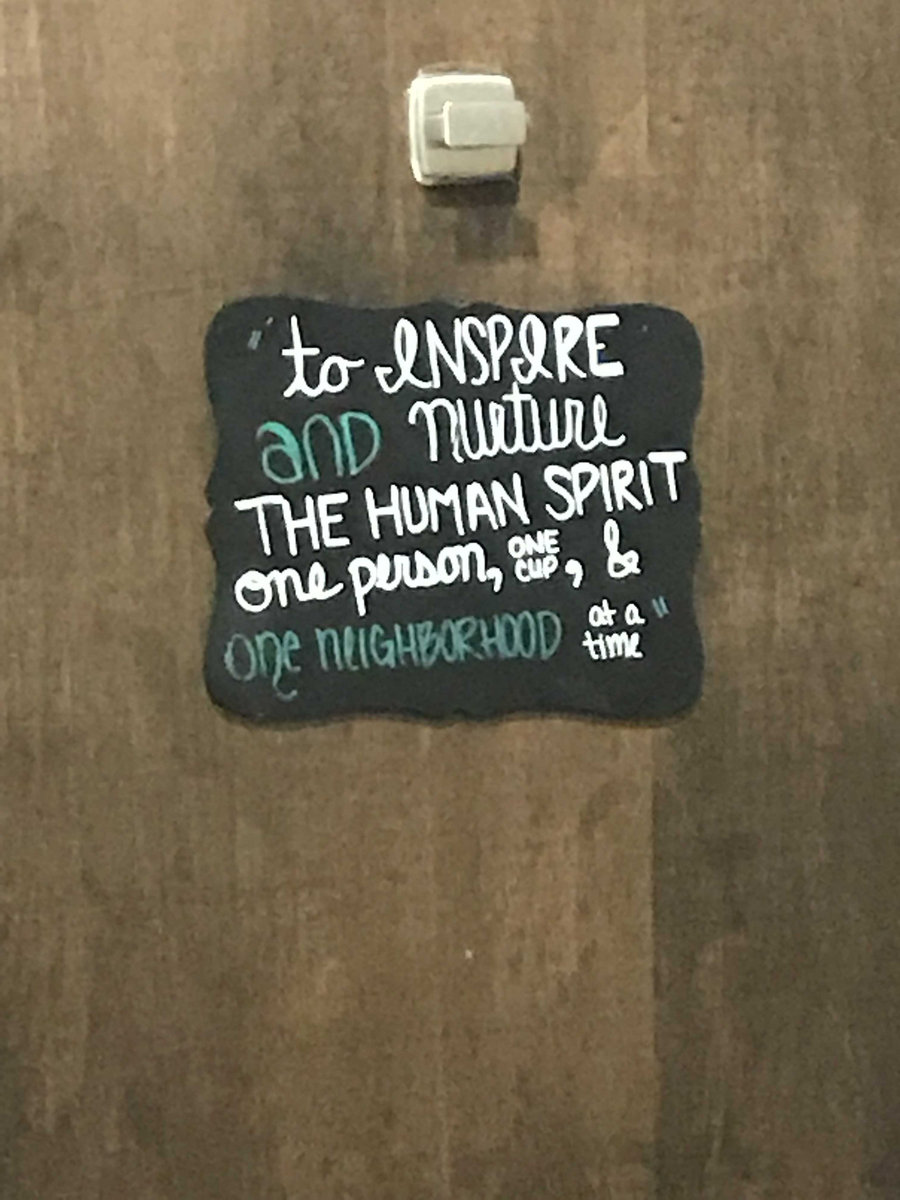 " to INSPIRE
AND nurture
THE HUMAN SPIRIT
one person, ONE CUP, &
One NEIGHBORHOOD at a time "